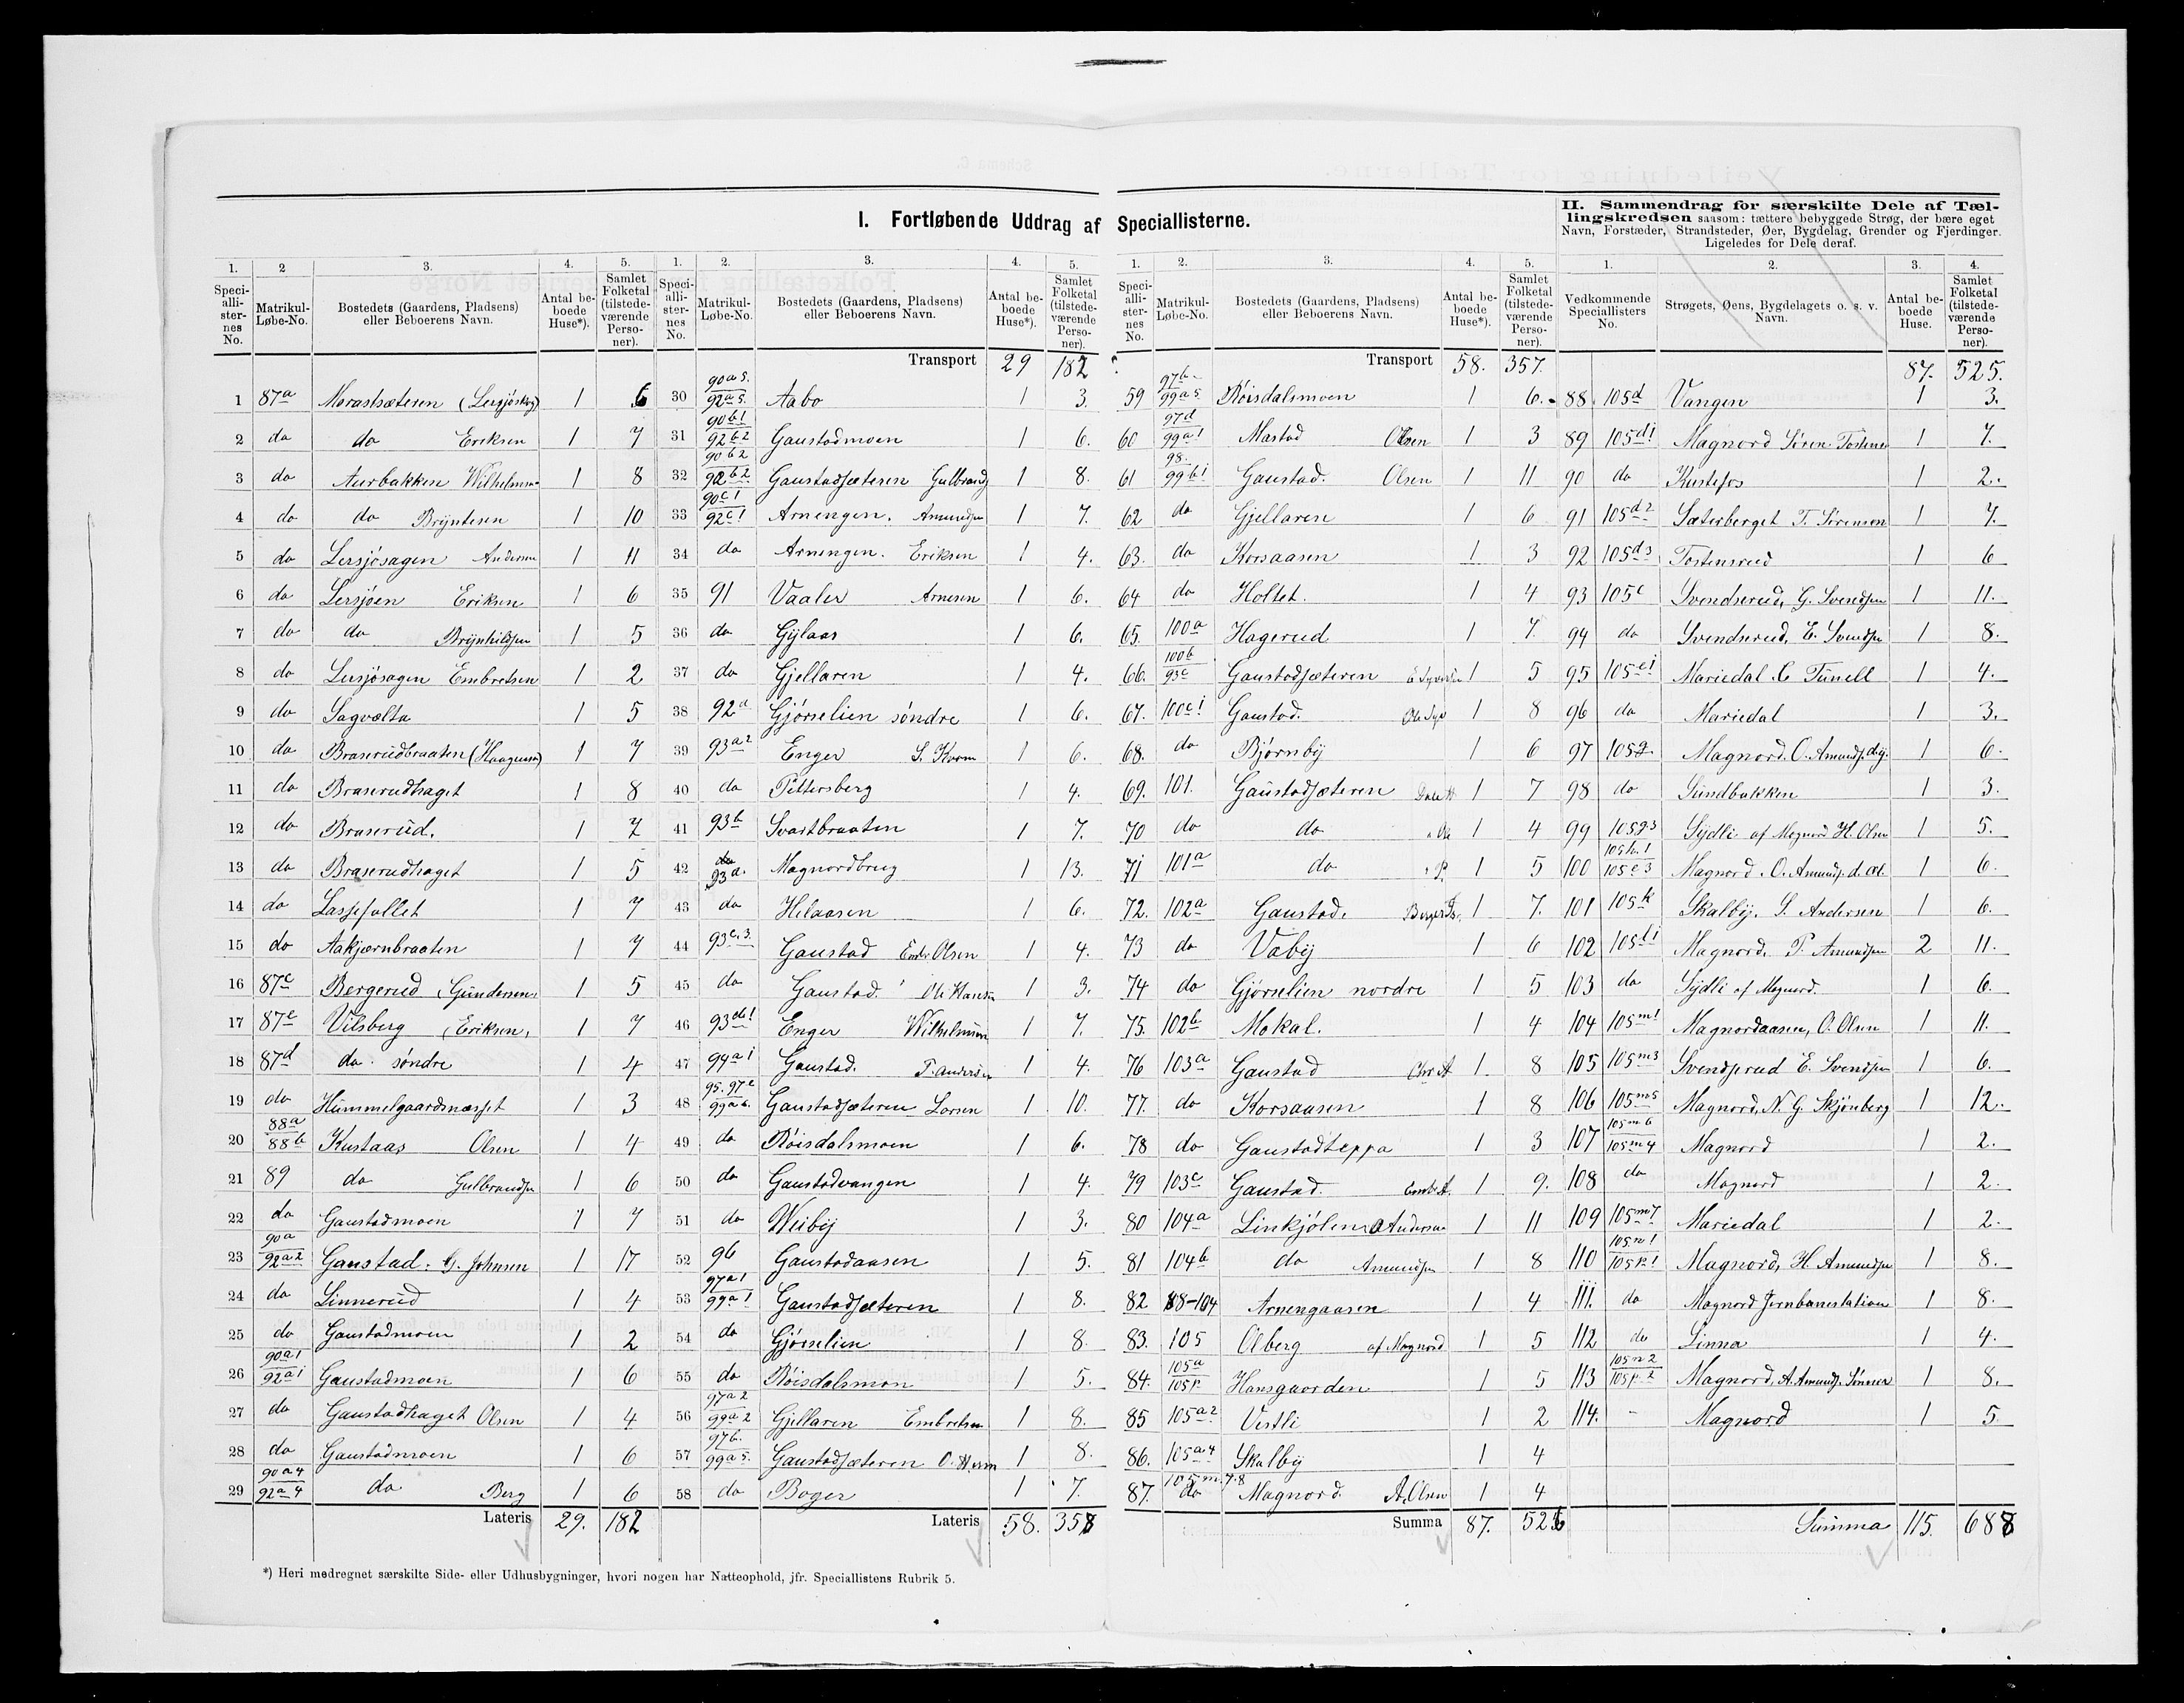 I. Fortløbende Uddrag af Speciallisterne.
II. Sammendrag for særskilte Dele af Tællingskredsen saasom: tættere bebyggede Strøg, der bære eget
Navn, Forstæder, Strandsteder, Øer, Bygdelag, Grender og Fjerdinger.
Ligeledes for Dele deraf.
1. 2 3. 4. 5.
Speciallisternes No. Matrikul-Løbe-No. Bostedets (Gaardens, Pladsens) eller Beboerens Navn. Antal beboede Huse*). Samlet Folketal (tilstedeværende Personer).
1 87a Morastsæteren 1 6
2 do do Eriksen 1 7
3 do Aurbakken 1 8
4 do do Bryntesen 1 10
5 do Lersjøsagen Andersen 1 11
6 do Lersjøen Eriksen 1 6
7 do do Brynhildsen 1 5
8 do Lersjøsagen Embretsen 1 2
9 do Sagvælta 1 5
10 do Braserudbraaten (Haagensen) 1 7
11 do Braserudhaget 1 8
12 do Braserud. 1 7
13 do Braserudhaget 1 5
14 do Lassefallet 1 7
15 do Aakjærnbraaten 1 7
16 87c Bergerud (Gundersen) 1 5
17 87e Vilsberg (Eriksen) 1 7
18 87d do søndre 1 4
19 do Hummelgaardsnæsset 1 3
20 88a 88b Kustaas Olsen 1 4
21 89 do Gulbrandsen 1 6
22 do Gaustadmoen 1 7
23 90a 92a2 Gaustad. G. Johnsen 1 17
24 do Linnerud 1 4
25 do Gaustadmoen 1 2
26 90a1 92a1 Gaustadmoen 1 6
27 do Gaustadhaget Olsen 1 4
28 do Gaustadmoen 1 6
29 90a4 92a4 do Berg 1 6
Lateris 29. 182
1. 2. 3. 4. 5.
Speciallisternes No. Matrikul-Løbe-No. Bostedets (Gaardens, Pladsens) eller Beboerens Navn. Antal beboede Huse*). Samlet Folketal (tilstedeværende Personer).
Transport 29 182
30 90a5. 92a5. Aabo 1 3.
31 90b1 92b2 Gaustadmoen 1 6.
32 90b2 92b2 Gaustadsæteren Gulbrands 1 8.
33 90c1 92c1 Arnengen. Amundsen 1 7.
34 do Arnengen. Eriksen 1 4.
35 91 Vaaler Arnesen 1 6.
36 do Gylaas 1 6.
37 do Gjellaren 1 4.
38 92a Gjørselien søndre 1 6.
39 93a2 Enger 1 6.
40 do Pettersberg 1 4.
41 93b Svartbraaten 1 7.
42 93d. Magnordbrug 1 13.
43 do Helaasen 1 6.
44 93c.3. Gaustad Embr. Olsen 1 4.
45 do Gaustad. Ole Hansen 1 3.
46 93d1 Enger Wilhelmsen 1 7.
47 94a1 Gaustad. T. Andersen 1 4.
48 95.97c 99a6. Gaustadsæteren Larsen 1 10.
49 do Røisdalsmoen 1 6.
50 do Gaustadvangen 1 4.
51 do Weiby 1 3.
52 96 Gaustadaasen 1 5.
53 97a1 99a1 Gaustadsæteren 1 8.
54 do Gjørselien 1 8.
55 do Røisdalsmon 1 5.
56 97a2 99a2 Gjellaren Embretsen 1 8.
57 97b. 99a5. Gaustadsæteren O. Herm 1 8.
58 do Boger 1 7.
Lateris 58. 357
1. 2. 3. 4. 5.
Speciallisternes No. Matrikul-Løbe-No. Bostedets (Gaardens, Pladsens) eller Beboerens Navn. Antal beboede Huse*). Samlet Folketal (tilstedeværende Personer).
Transport 58. 357.
59 97b 99a5 Røisdalsmoen 1 6.
60 97d 99a1 Mastad Olsen 1 3
61 98. 99b1 Gaustad. Olsen 1 11
62 do Gjellaren 1 6
63. do Korsaasen 1 3
64 do Holtet. 1 4
65. 100a Hagerud 1 7.
66. 100b 93c Gaustadsæteren 1 5
67. 100c1 Gaustad. 1 8
68. do Bjørnby 1 6
69. 101. Gaustadsæteren 1 7
70 do do 1 4
71 101a do 1 5
72. 102a Gaustad. 1 7.
73 do Vaby 1 6
74 do Gjørselien nordre 1 5
75. 102b Mokal. 1 4
76 103a Gaustad Chr. A 1 8
77. do Korsaasen 1 8
78 do Gaustadteppa 1 3
79 103c Gaustad. Emb. A. 1 9.
80 104a Linkjølen Andersen 1 11
81 104b do Amundsen 1 8
82 88-104 Arnengaasen 1 4
83. 105 Olberg af Magnord 1 5
84. 105a 105p Hansgaarden 1 5
85 105a2 Vestli 1 2
86. 105a4 Skalby 1 4
87. 105.m.7.8 do Magnord. A. Olsen 1 4
Summa 87. 526
1. 2. 3. 4.
Vedkommende Speciallisters No. Strøgets, Øens, Bygdelagets o. s. v. Navn. Antal beboede Huse. Samlet Folketal (tilstedeværende Personer).
87. 525.
88 105d Vangen 1 3.
89 105d1 Magnord Søren Tostens 1 7.
90 do Kustefos 1 2.
91 105d2 Sæterberget T. Sørensen 1 7.
92 105d3 Tostensrud 1 6
93 105e Svendserud, G. Svendsen 1 11.
94 do Svendserud, E. Svendsen 1 8.
95 105e1 Mariedal C Tunell 1 4.
96 do Mariedal 1 3.
97 105g Magnord. O. Amunds. d.y. 1 6.
98 do Sundbakken 1 3.
99 105g3 Sydli af Magnord H. Olsen 1 5.
100 105h.1 105e3 Magnord. O. Amunds. d. æl. 1 6.
101 105k Skalby. S. Andersen 1 6.
102 105l1 Magnord. P. Amundsen 2 11.
103 do Sydli af Magnord. 1 6.
104 105m1 Magnordaasen, O. Olsen 1 11.
105 105m3 Svendserud E. Svendsen 1 6.
106 105m5 Magnord, N. G. Skjønberg 1 12.
107 105m6 105m4 Magnord 1 2.
108 do Magnord 1 2.
109 105m7 Mariedal 1 2.
110 105n1 105p1 Magnord, H. Amundsen 1 8.
111. do Magnord Jernbanestation 1 8.
112 do Linna 1 4.
113 105n2 105p.2 Magnord. A. Amunds. Sønner 1 8.
114. - Magnord 1 5
Summa 115. 688
*) Heri medregnet særskilte Side- eller Udhusbygninger, hvori nogen har Natteophold, jfr. Speciallistens Rubrik 5.